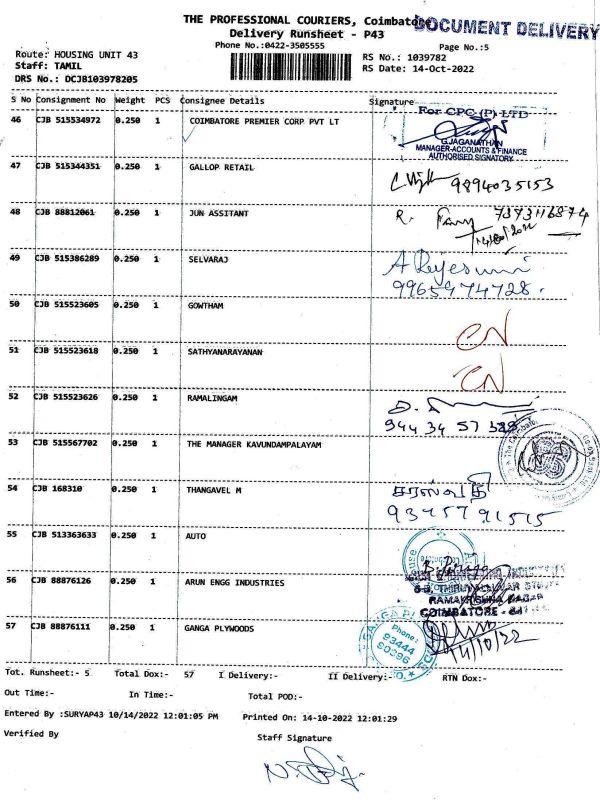 THE PROFESSIONAL COURIERS, Coimbatore
DOCUMENT DELIVERY
Delivery Runsheet - P43
Phone No.:0422-3505555
Page No.:5
Route: HOUSING UNIT 43
RS No.: 1039782
Staff: TAMIL
RS Date: 14-Oct-2022
DRS No.: DCJB103978205
S No Consignment No Weight PCS Consignee Details Signature
46 CJB 515534972 0.250 1 COIMBATORE PREMIER CORP PVT LT
For CPC (P) LTD
G.JAGANATHAN
MANAGER-ACCOUNTS & FINANCE
AUTHORISED SIGNATORY
47 CJB 515344351 0.250 1 GALLOP RETAIL
9894035153
48 CJB 88812061 0.250 1 JUN ASSITANT
R. 7373116874
49 CJB 515386289 0.250 1 SELVARAJ
9965974728.
50 CJB 515523605 0.250 1 GOWTHAM
CN
51 CJB 515523618 0.250 1 SATHYANARAYANAN
CN
52 CJB 515523626 0.250 1 RAMALINGAM
944 34 57 328
53 CJB 515567702 0.250 1 THE MANAGER KAVUNDAMPALAYAM
54 CJB 168310 0.250 1 THANGAVEL M
சரஸ்வதி
9345791515
55 CJB 513363633 0.250 1 AUTO
56 CJB 88876126 0.250 1 ARUN ENGG INDUSTRIES
RAMAKRISHNA NAGAR
COIMBATORE - 641
57 CJB 88876111 0.250 1 GANGA PLYWOODS
GANGA PL
Phone:
93444
90396
14/10/22
Tot. Runsheet:- 5 Total Dox:- 57 I Delivery:- II Delivery:- RTN Dox:-
Out Time:- In Time:- Total POD:-
Entered By :SURYAP43 10/14/2022 12:01:05 PM Printed On: 14-10-2022 12:01:29
Verified By Staff Signature